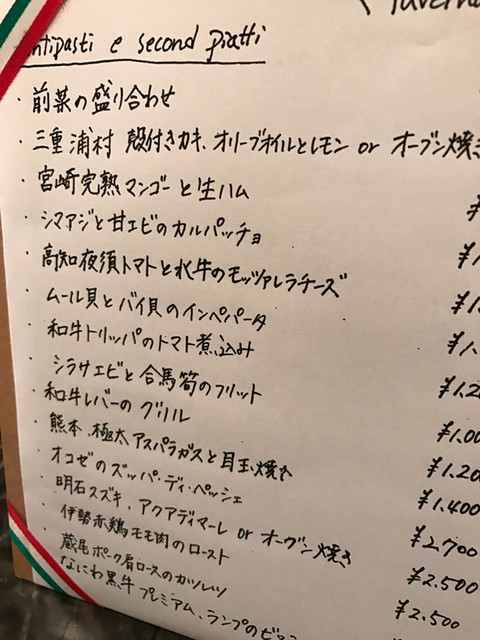 ntipasti e second piatti
・前菜の盛り合わせ
・三重 浦村 殻付きカキ、オリーブオイルとレモン or オーブン焼き
・宮崎完熟マンゴーと生ハム
・シマアジと甘エビのカルパッチョ
・高知夜須トマトと水牛のモッツァレラチーズ
・ムール貝とバイ貝のインペパータ
・和牛トリッパのトマト煮込み
・シラサエビと合馬筍のフリット
・和牛レバーのグリル ¥1.2
・熊本 極太アスパラガスと目玉焼き ¥1.00
・オコゼのズッパ・ディ・ペッシェ ¥1.200
・明石スズキ、アクアディマーレ or オーヴン焼き ¥1.400
・伊勢赤鶏モモ肉のロースト ¥2.700
・蔵尾ポーク肩ロースのカツレツ ¥2.500
・なにわ黒牛プレミアム、ランプの ¥2.500